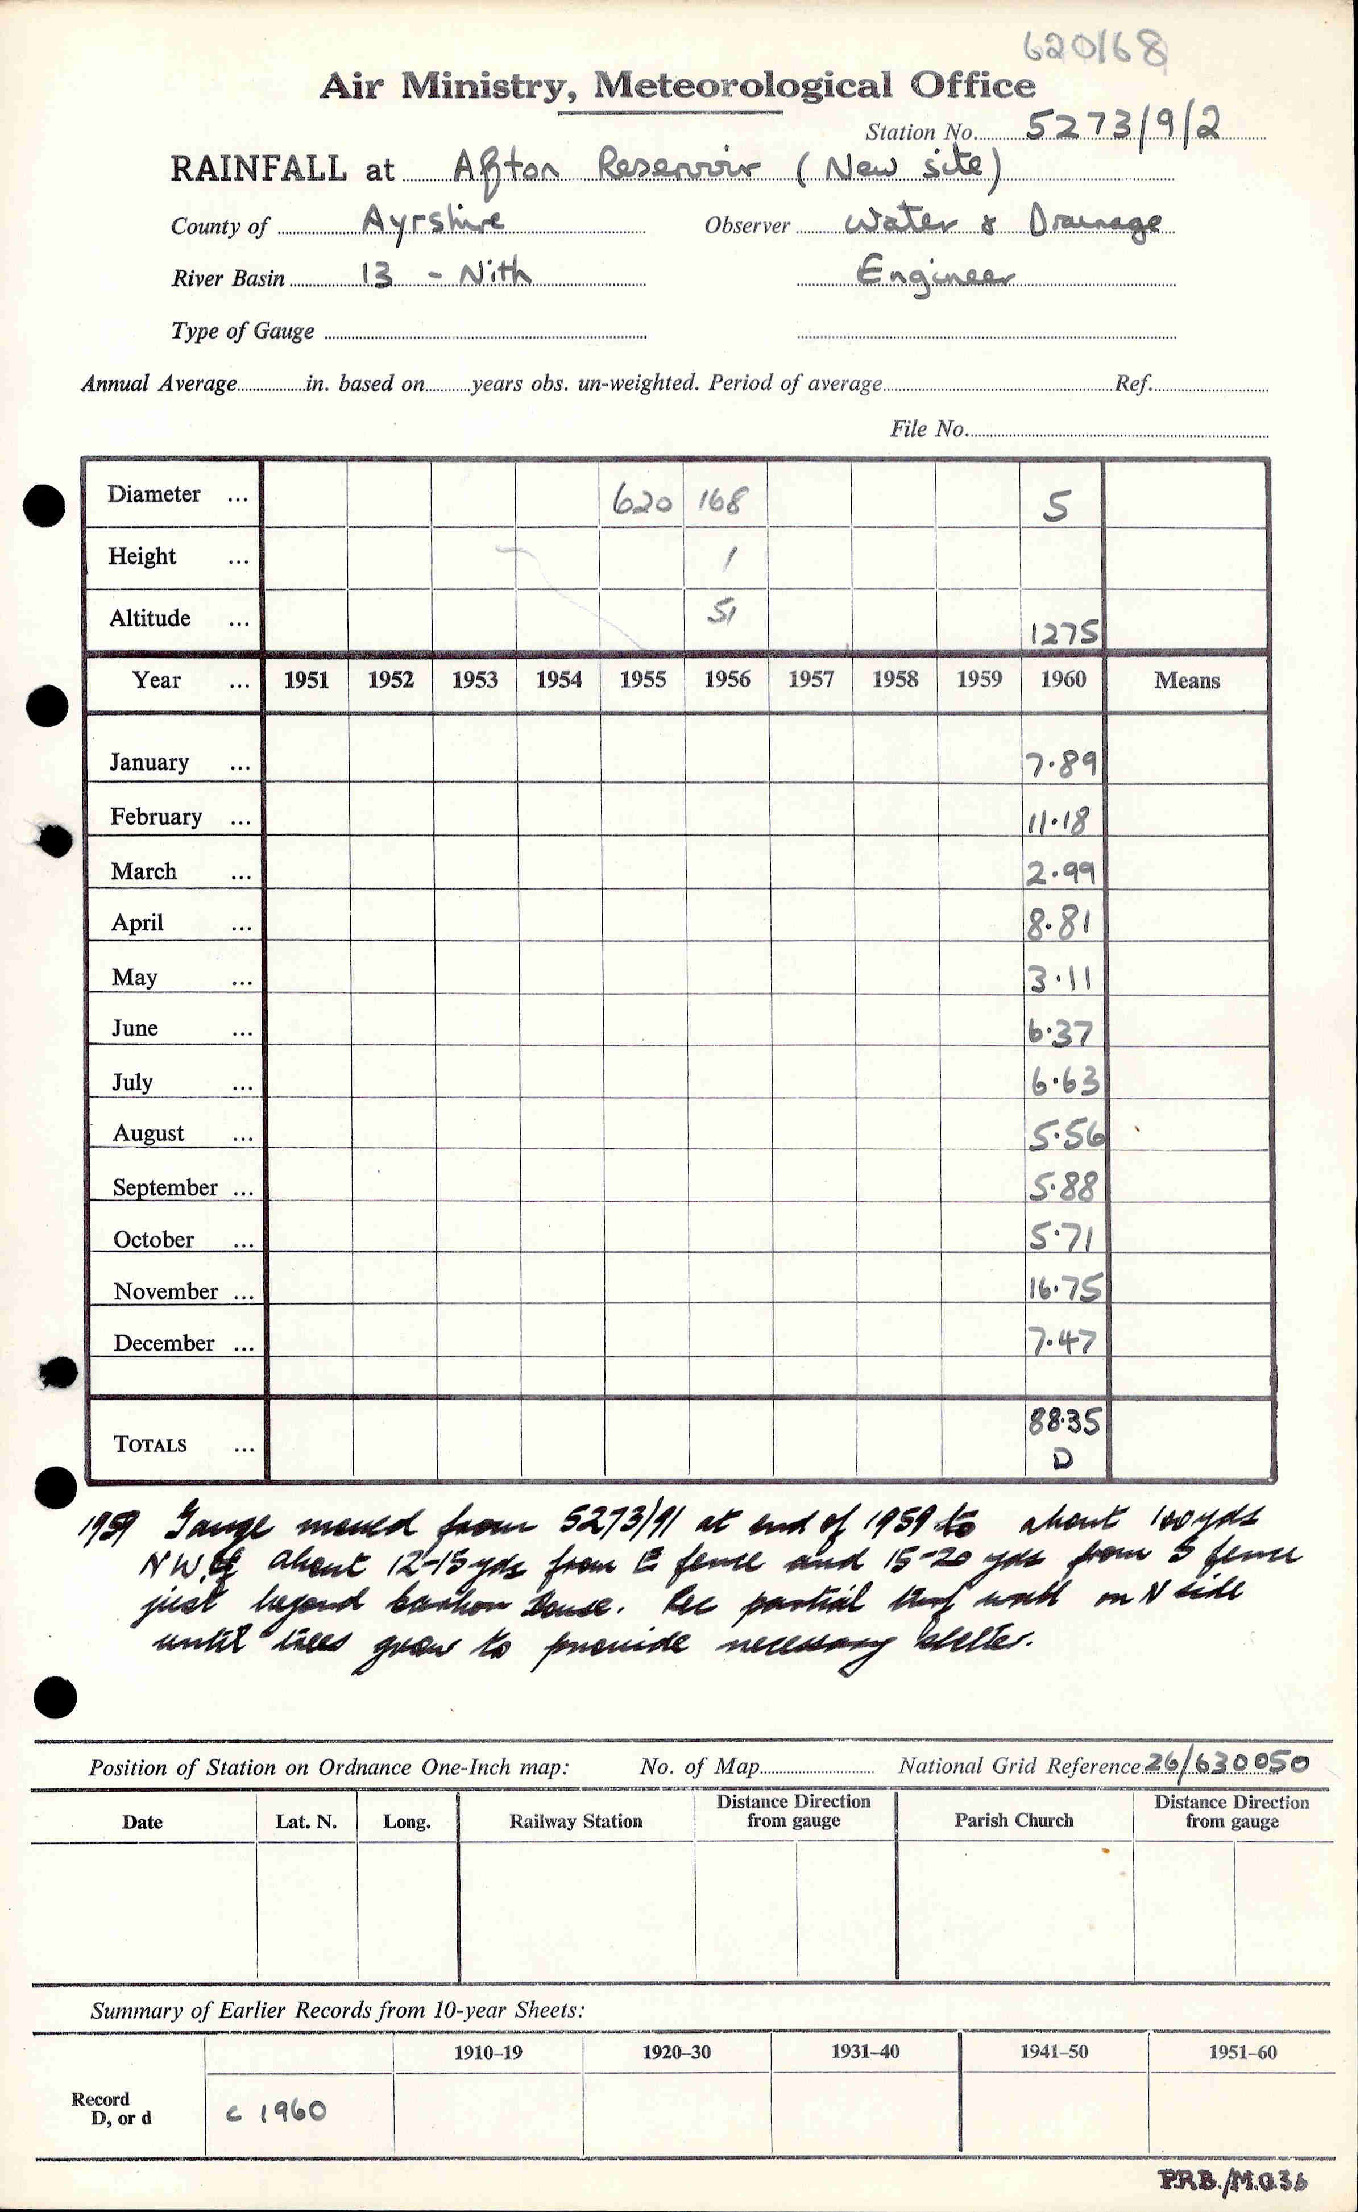 620168
Air Ministry, Meteorological Office
Station No. 5273/9/2
RAINFALL at Afton Reservoir (New site)
County of Ayrshire Observer Water & Drainage
River Basin 13 - Nith Engineer
Type of Gauge
Annual Average in. based on years obs. un-weighted. Period of average Ref.
File No.
Diameter ... 620 168 5
Height ... 1
Altitude ... 51 1275
Year ... 1951 1952 1953 1954 1955 1956 1957 1958 1959 1960 Means
January ... 7.89
February ... 11.18
March ... 2.99
April ... 8.81
May ... 3.11
June ... 6.37
July ... 6.63
August ... 5.56
September ... 5.88
October ... 5.71
November ... 16.75
December ... 7.47
TOTALS ... 88.35
D
1959 Gauge moved from 5273/91 at end of 1959 to about 100 yds
NW of about 12-15 yds from E fence and 15-20 yds from S fence
just beyond House. Rec partial turf wall on N side
until trees grow to provide necessary shelter.
Position of Station on Ordnance One-Inch map: No. of Map National Grid Reference 26/630050
Date Lat. N. Long. Railway Station Distance Direction from gauge Parish Church Distance Direction from gauge
Summary of Earlier Records from 10-year Sheets:
1910–19 1920–30 1931–40 1941–50 1951–60
Record
D, or d c 1960
P.R.B./M.O.36